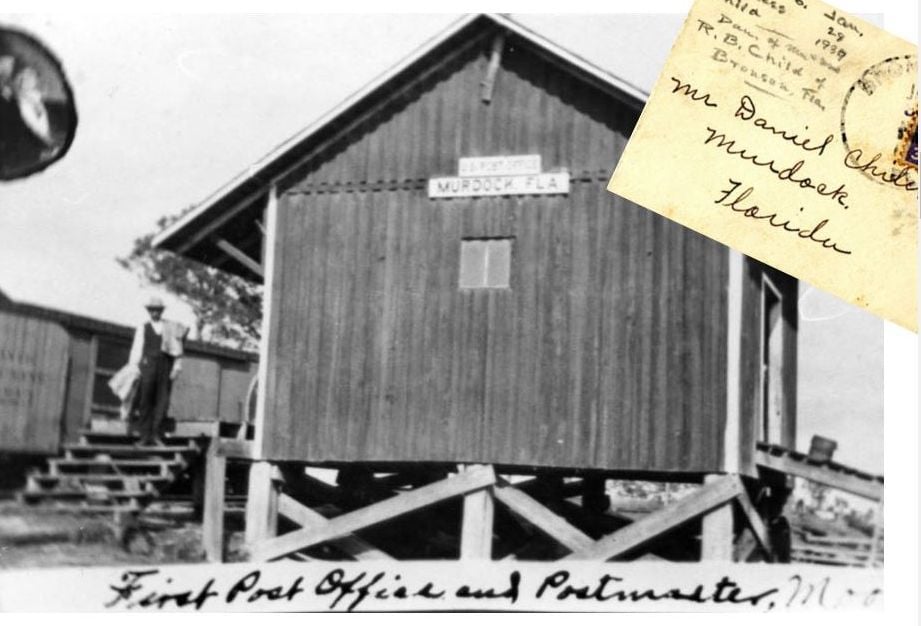 U.S. POST OFFICE
MURDOCK, FLA
Jan,
29
1939
Child
Dau. of
R. B. Child of
Bronson, Fla,
Mr Daniel Child
Murdock,
Florida
First Post Office and Postmaster,